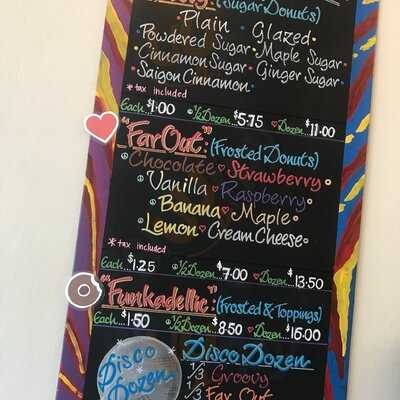 (Sugar Donuts)
Plain Glazed
Powdered Sugar Maple Sugar
Cinnamon Sugar Ginger Sugar
Saigon Cinnamon
* tax included
Each $1.00 ½ Dozen...$5.75 Dozen $11.00
"Far Out:" (Frosted Donuts)
Chocolate Strawberry
Vanilla Raspberry
Banana Maple
Lemon Cream Cheese
* tax included
Each...$1.25 ½ Dozen...$7.00 Dozen...$13.50
"Funkadellic:" (Frosted & Toppings)
Each...$1.50 ½ Dozen...$8.50 Dozen...$16.00
Disco Dozen
Disco Dozen
1/3 Groovy
1/3 Far Out